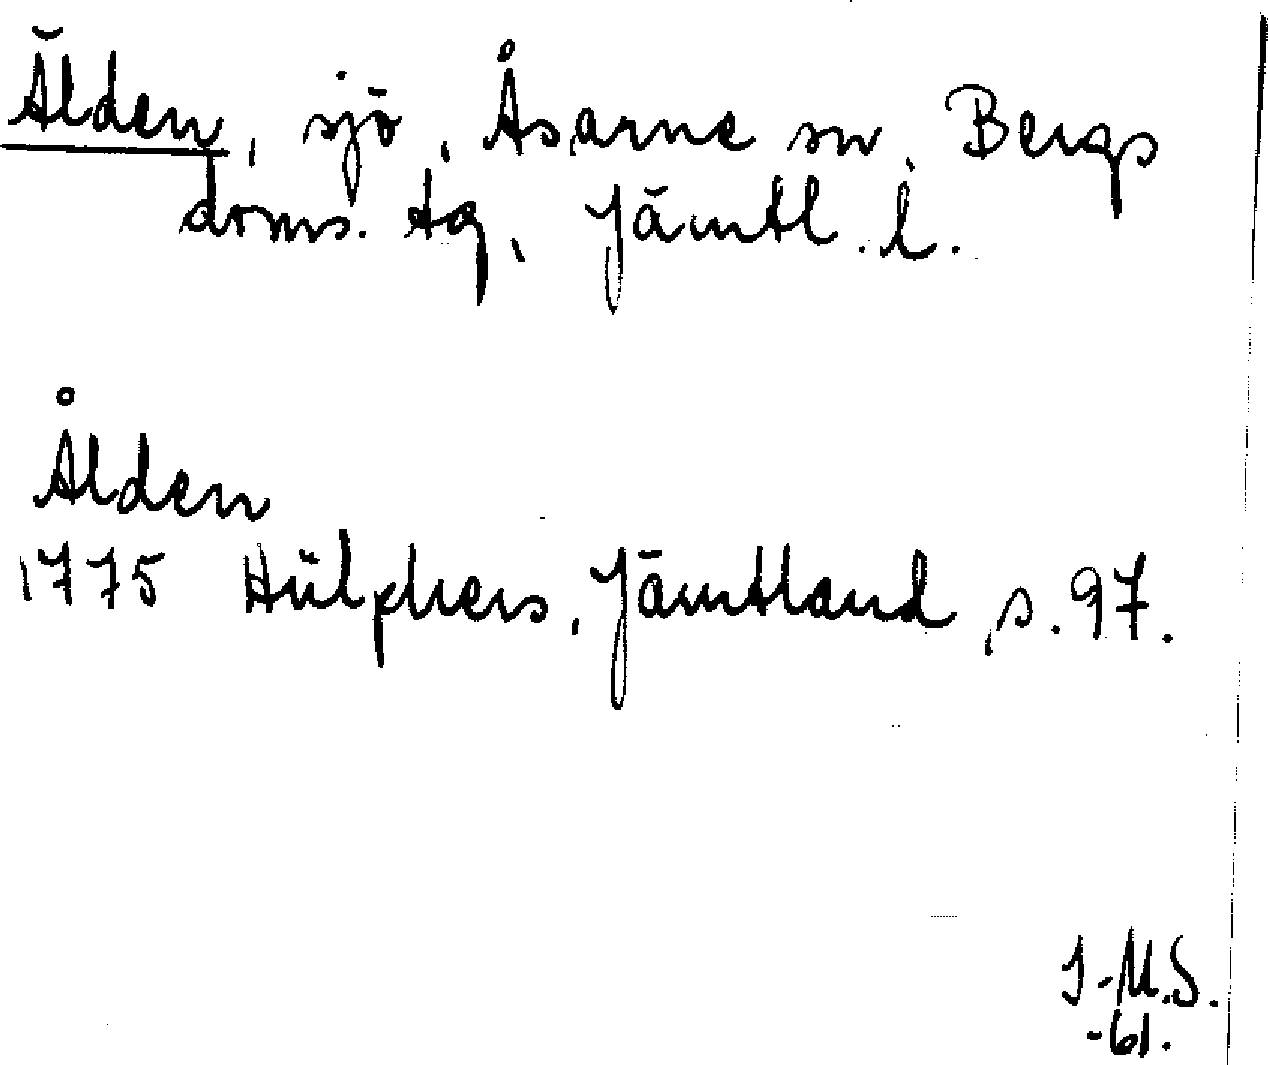 Älden, sjö, Åsarne sn, Bergs
doms. tg, Jämtl. l.
Ålden
1775 Hülphers, Jämtland, s. 97.
I-M.S.
-61.